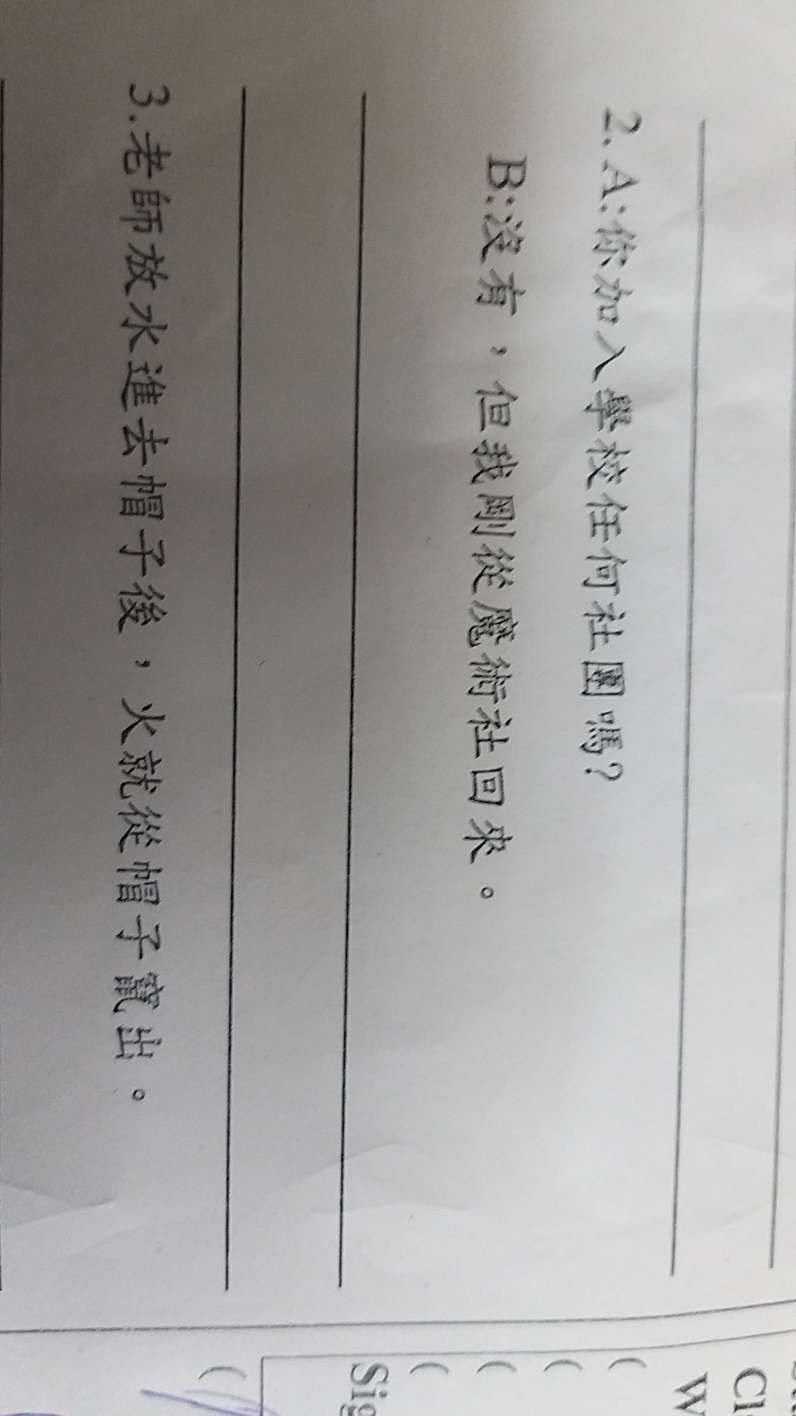 2. A:你加入學校任何社團嗎?
B:沒有，但我剛從魔術社回來。
3.老師放水進去帽子後，火就從帽子竄出。
Cl
W
(
(
(
(
Sig
(